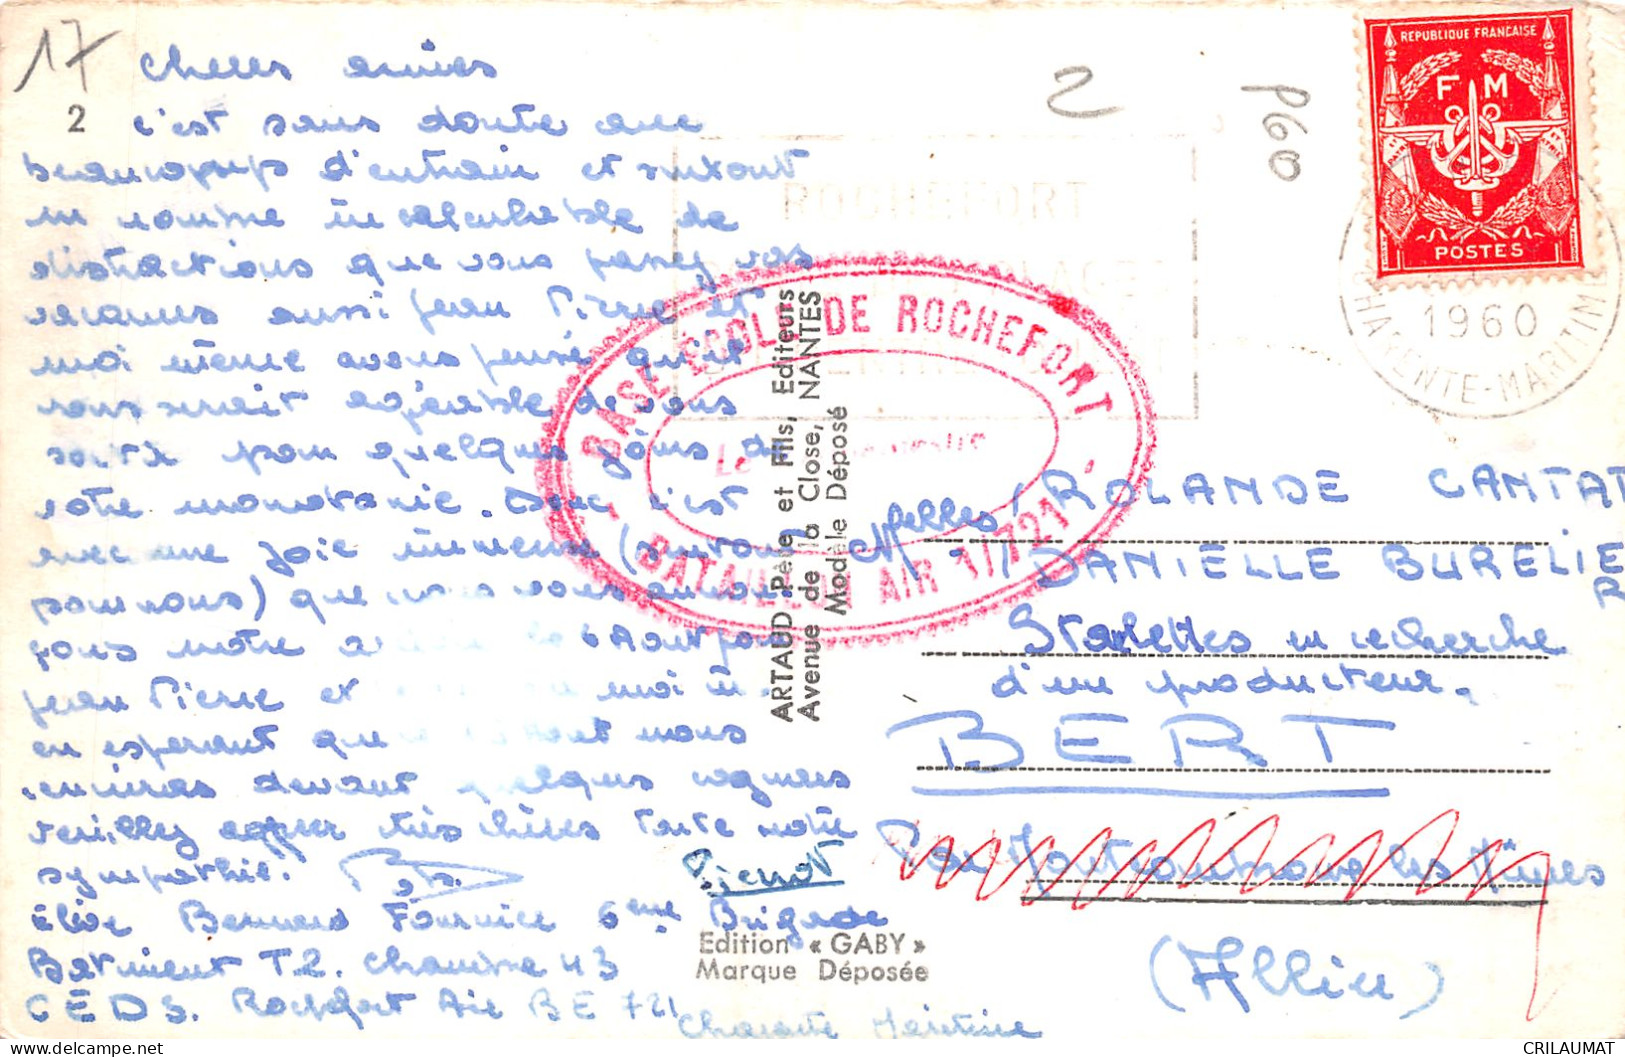 17
2
P60
REPUBLIQUE FRANCAISE
F M
POSTES
1960
CHARENTE-MARITIME
ROCHEFORT
BASE ECOLE DE ROCHEFORT
BATAILLON AIR 1/721
Le
2 Cheres amies
c'est sans doute avec
beaucoups d'entrain et surtout
un nombre incalculable de
distractions que vous passez vos
vacances aussi Jean Pierre et
moi même avons pensé qu'il
vous serait agréable de vous
sortir pour quelques jours de
votre monotonie. Donc c'est
avec une joie immense (surtout
pour nous) que nous vous
notre 6 Aout
Jean Pierre et moi
en esperant que nous
devant quelques cognacs
veuillez agréer très chères toute notre
sympathie.
Pichot
élève Bernard Fournier 6eme Brigade
Batiment T2. chambre 43
C E D S. Rochefort Air BE 721
Charente Maritime
ARTAUD Père et Fils, Editeurs
Avenue de la Close, NANTES
Modèle Déposé
Edition « GABY »
Marque Déposée
Melles ROLANDE CANTAT
DANIELLE BURELIER
Starlettes en recherche
d'un producteur.
BERT
Par les Mines
(Allier)
CRILAUMAT